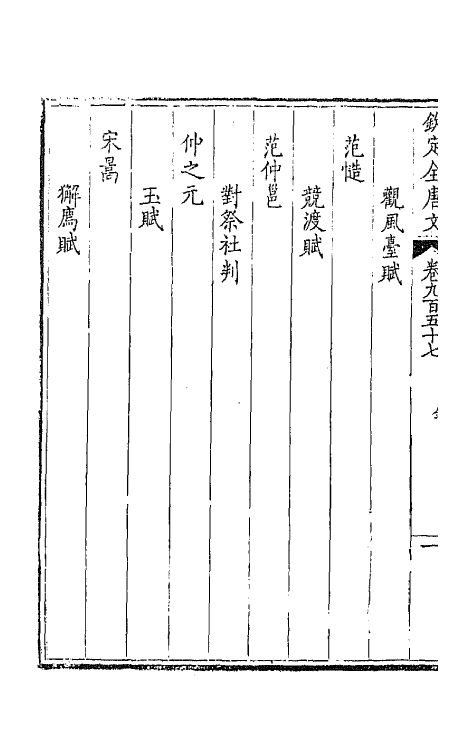 欽定全唐文
卷九百五十七
一
觀風臺賦
范慥
競渡賦
范仲邕
對祭社判
仲之元
玉賦
宋暠
獬廌賦